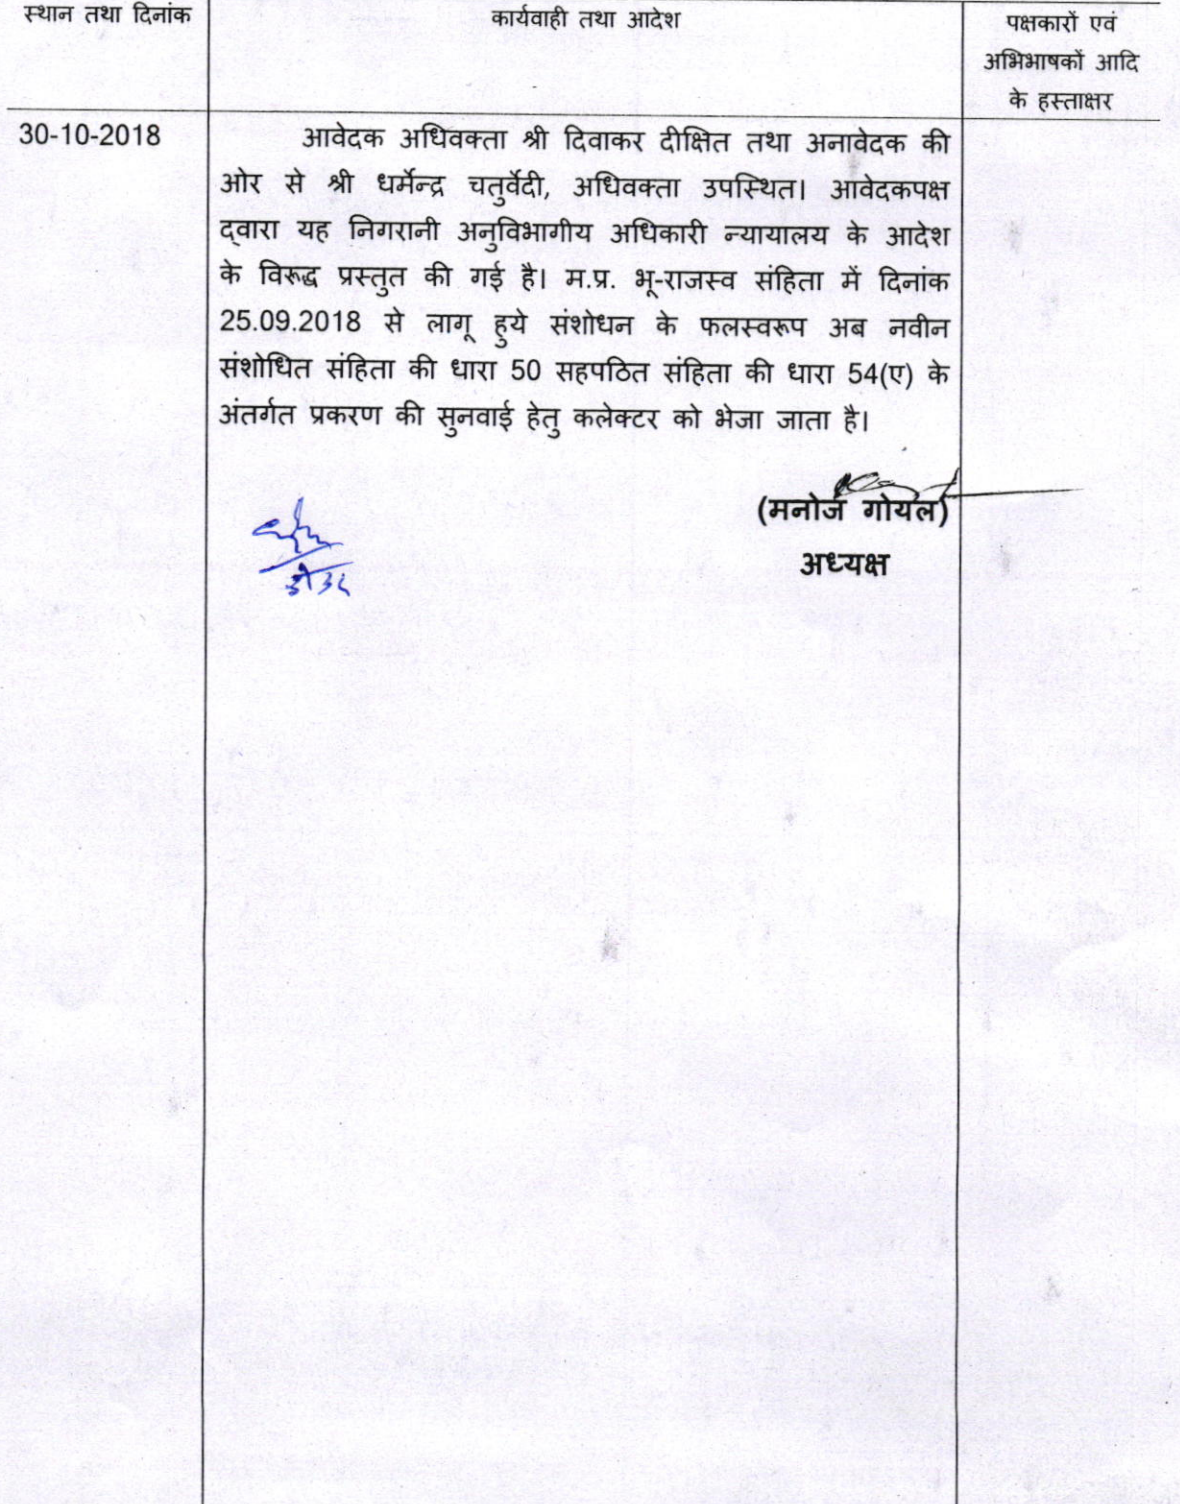 स्थान तथा दिनांक
कार्यवाही तथा आदेश
पक्षकारों एवं
अभिभाषकों आदि
के हस्ताक्षर
30-10-2018
आवेदक अधिवक्ता श्री दिवाकर दीक्षित तथा अनावेदक की
ओर से श्री धर्मेन्द्र चतुर्वेदी, अधिवक्ता उपस्थित। आवेदकपक्ष
द्वारा यह निगरानी अनुविभागीय अधिकारी न्यायालय के आदेश
के विरूद्ध प्रस्तुत की गई है। म.प्र. भू-राजस्व संहिता में दिनांक
25.09.2018 से लागू हुये संशोधन के फलस्वरूप अब नवीन
संशोधित संहिता की धारा 50 सहपठित संहिता की धारा 54(ए) के
अंतर्गत प्रकरण की सुनवाई हेतु कलेक्टर को भेजा जाता है।
(मनोज गोयल)
अध्यक्ष